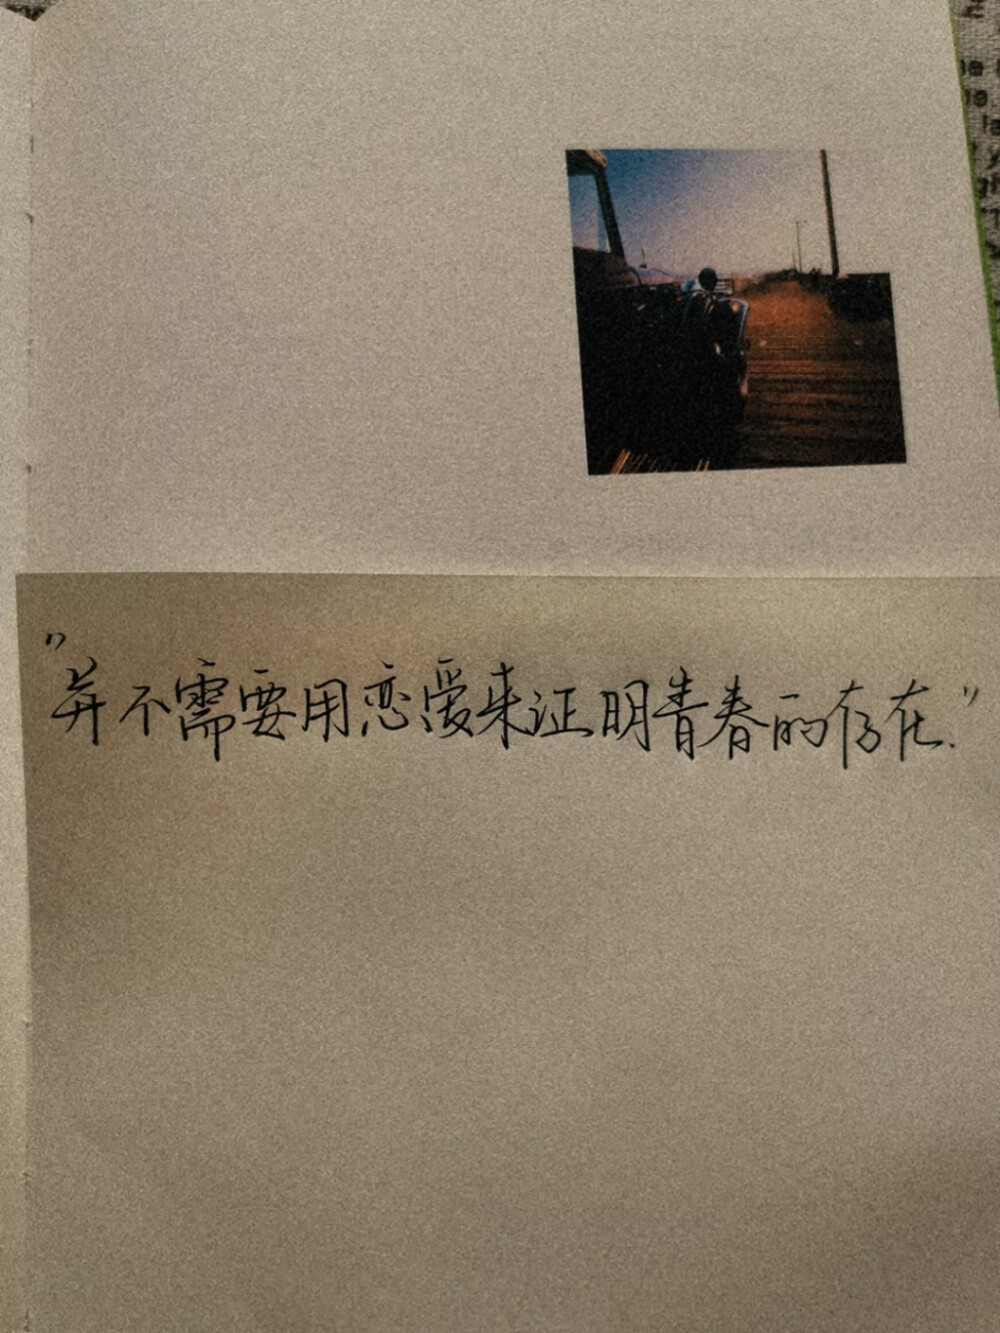 "并不需要用恋爱来证明青春的存在."